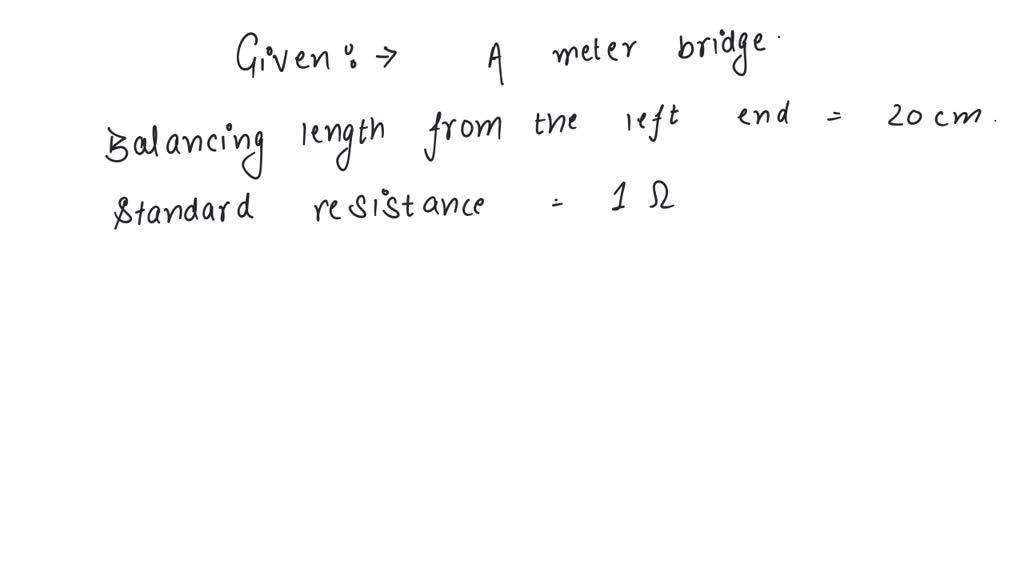 Given :→ A meter bridge.
Balancing length from the left end = 20 cm.
Standard resistance = 1 Ω